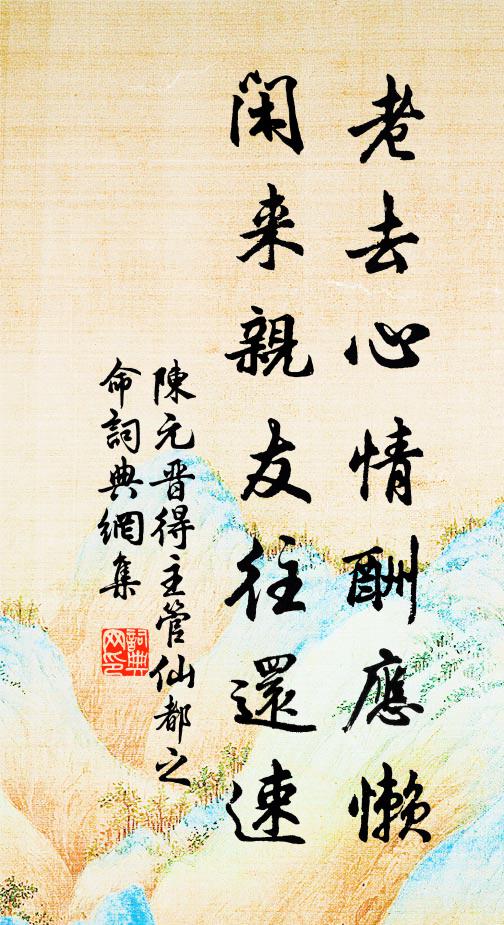 老去心情酬應懶
閑来親友往還速
陳元晋得主管仙都之
命詞典網集
詞典
网印